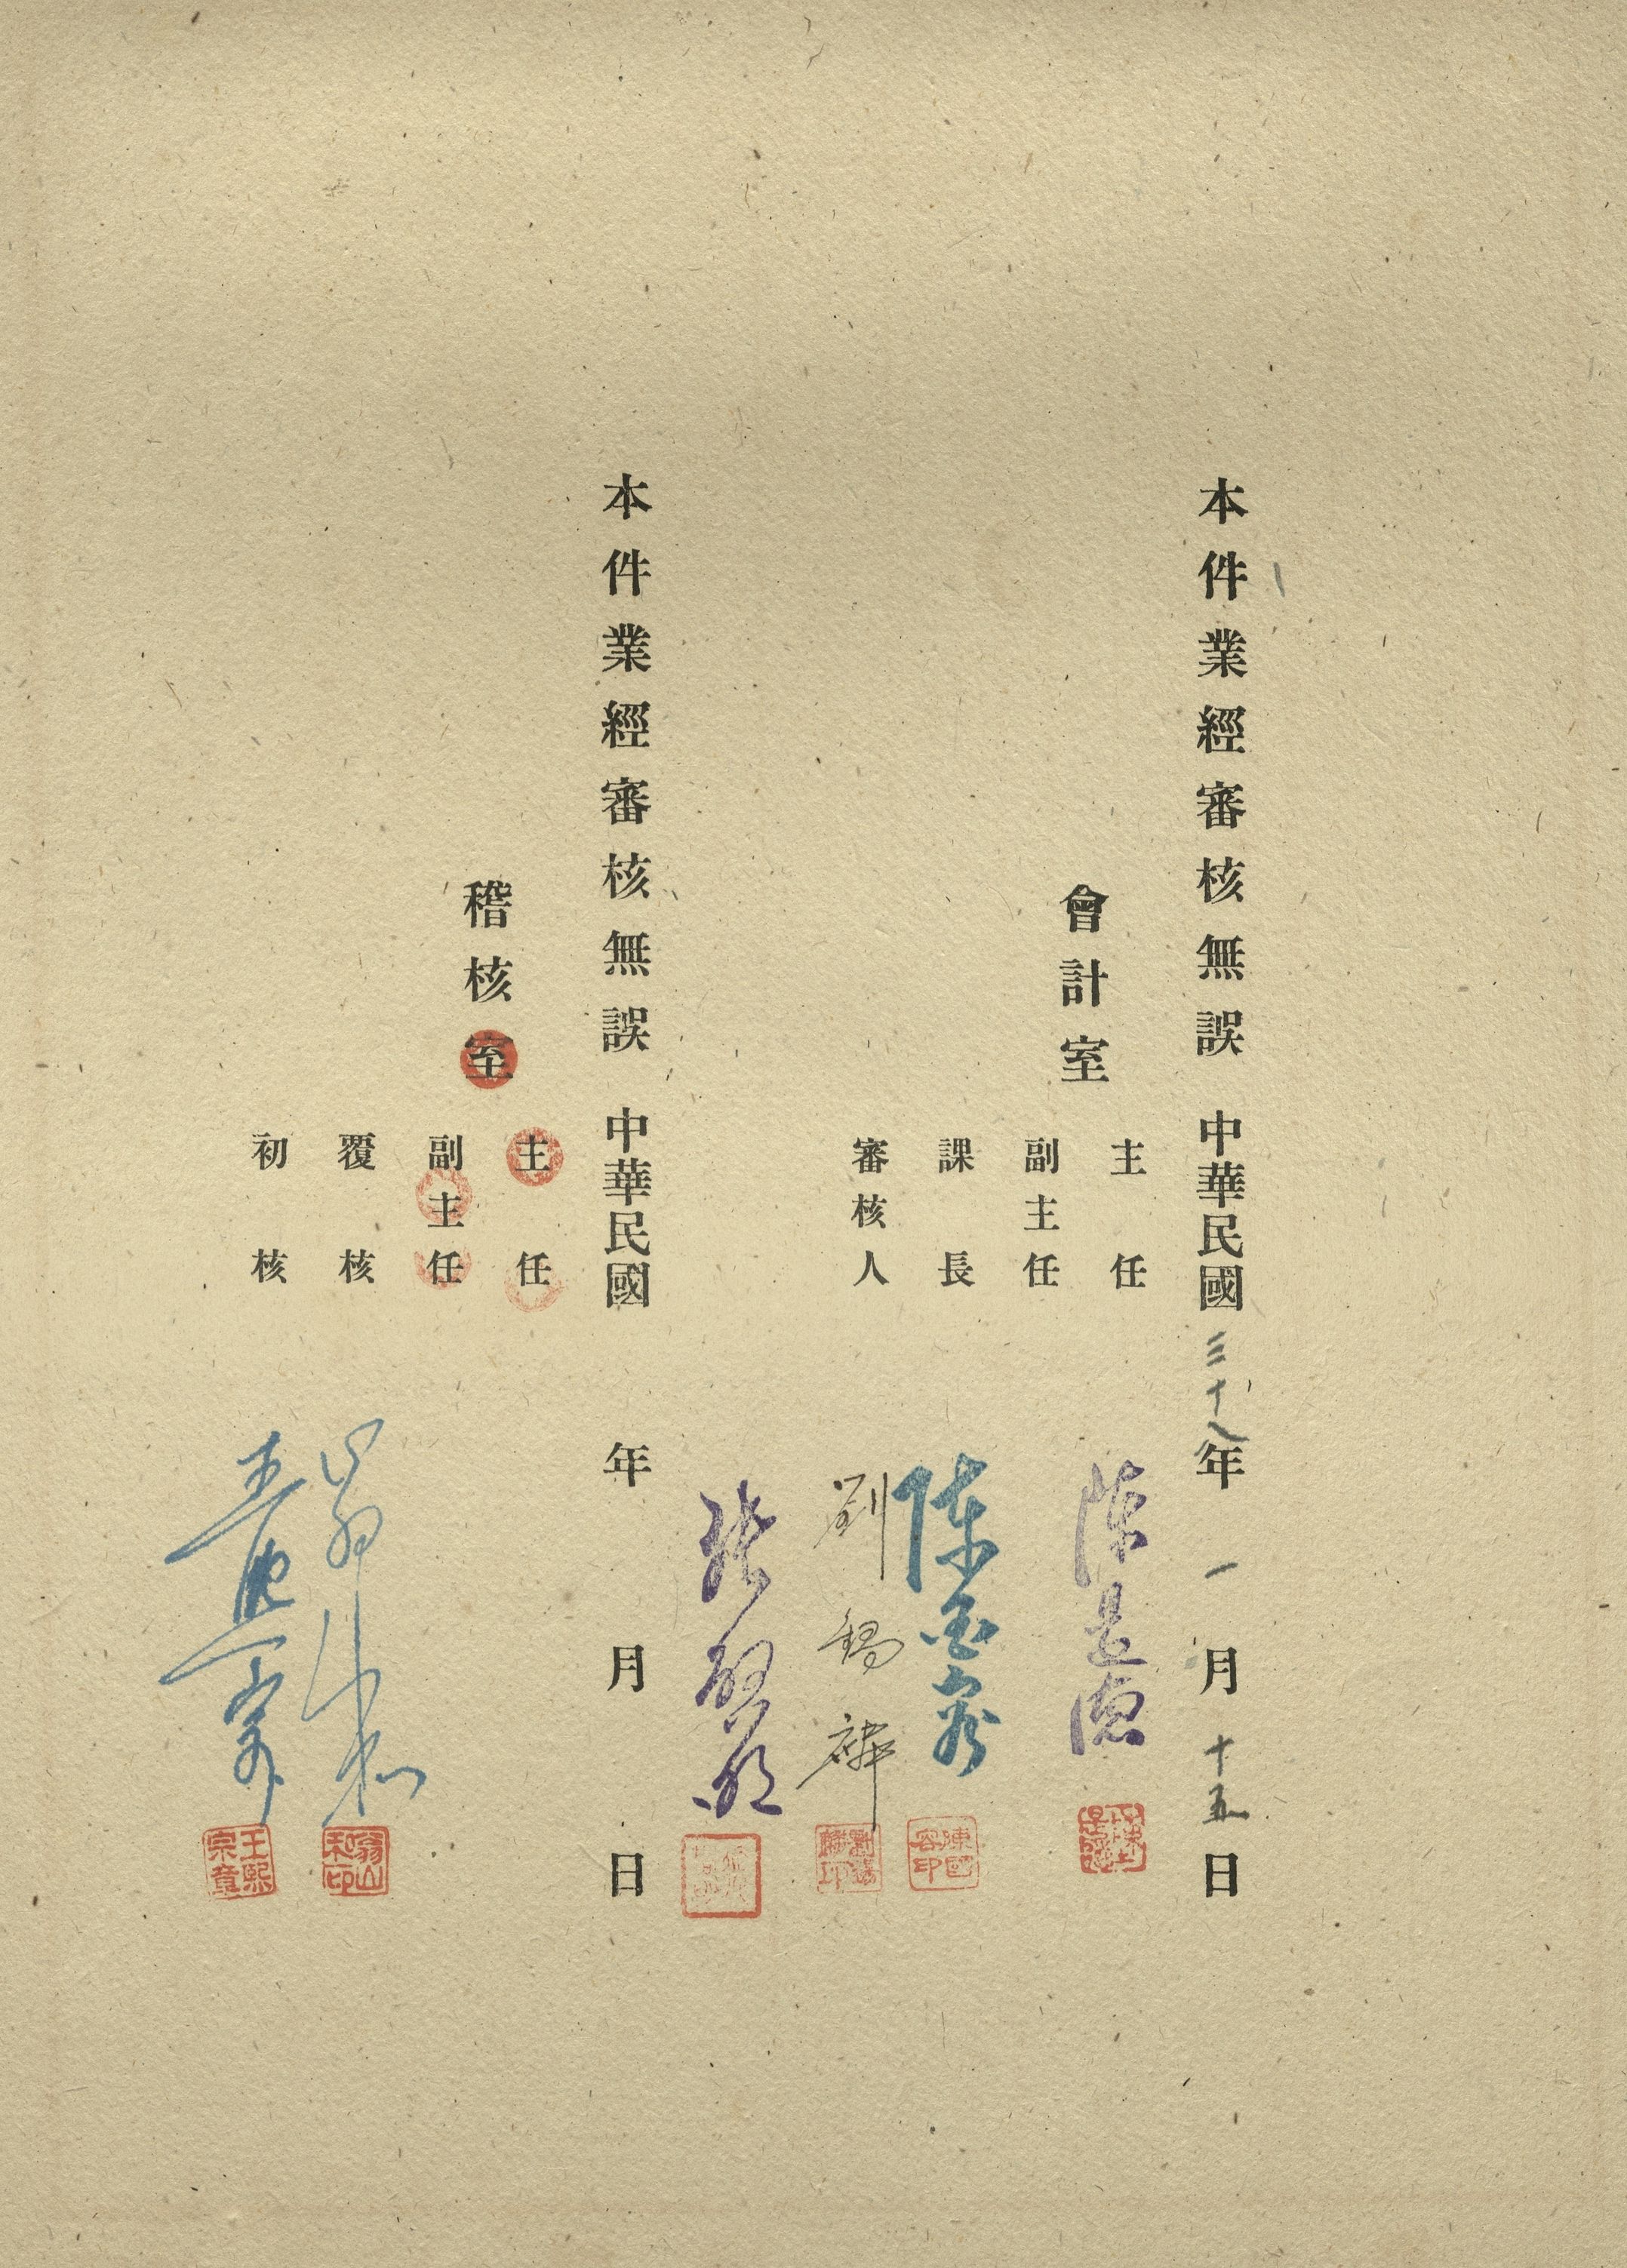 本件業經審核無誤 中華民國三十八年一月十五日
會計室
主任 陳是德
副主任
課長 陳國容
審核人 劉錫麟
本件業經審核無誤 中華民國 年 月 日
稽核室
主任
副主任
覆核 翁山和
初核 王熙宗
陳國容印
翁山和印
王熙宗章